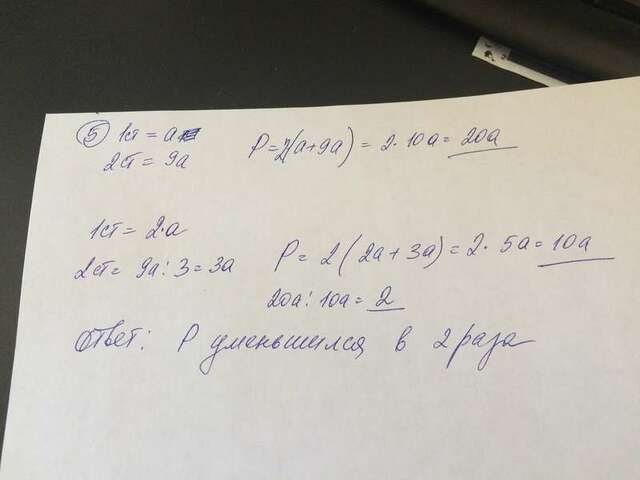 5) 1ст = a
2ст = 9a
P=2(a+9a) = 2·10a= 20a
1ст = 2·a
2ст= 9a:3=3a
P= 2(2a+3a)=2·5a=10a
20a:10a=2
Ответ: P уменьшился в 2 раза